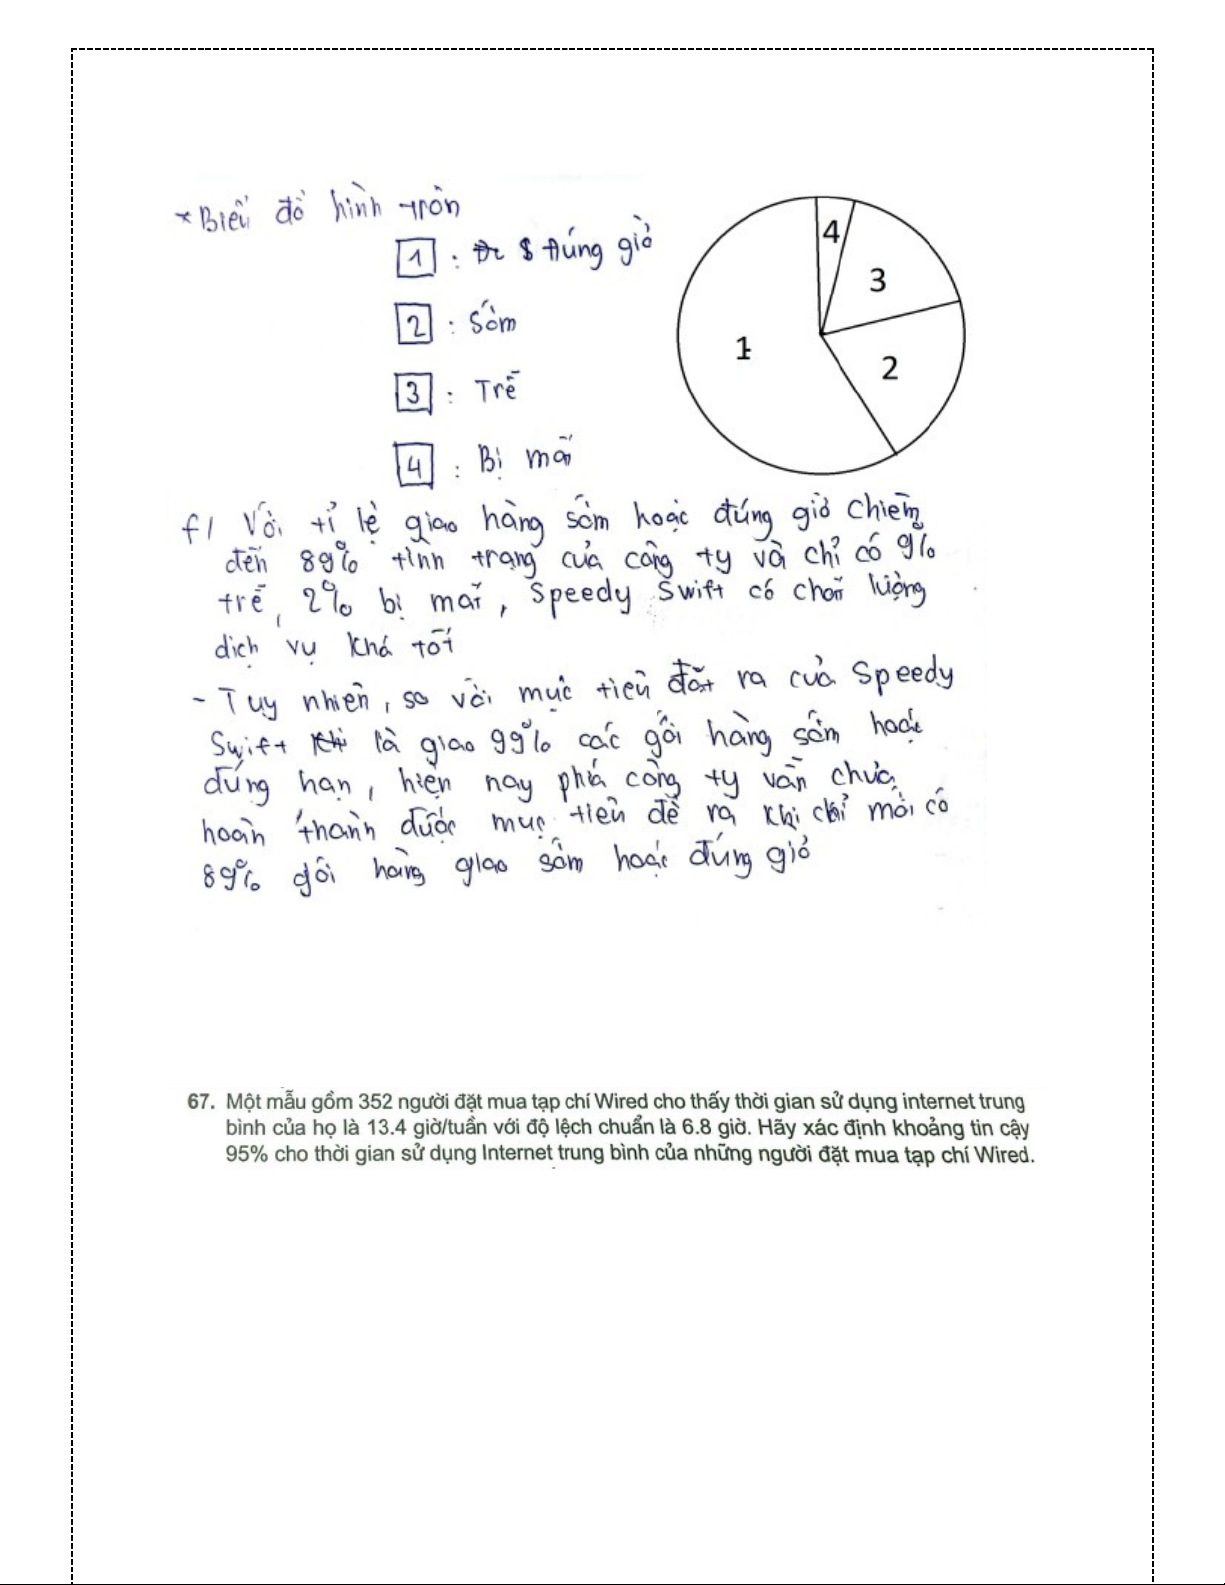 * Biểu đồ hình tròn
1 : Đúng giờ
2 : Sớm
3 : Trễ
4 : Bị mất
4
3
1
2
f/ Với tỉ lệ giao hàng sớm hoặc đúng giờ chiếm
đến 89% tình trạng của công ty và chỉ có 9%
trễ, 2% bị mất, Speedy Swift có chất lượng
dịch vụ khá tốt
- Tuy nhiên, so với mục tiêu đặt ra của Speedy
Swift là giao 99% các gói hàng sớm hoặc
đúng hạn, hiện nay phía công ty vẫn chưa
hoàn thành được mục tiêu đề ra khi chỉ mới có
89% gói hàng giao sớm hoặc đúng giờ
67. Một mẫu gồm 352 người đặt mua tạp chí Wired cho thấy thời gian sử dụng internet trung
bình của họ là 13.4 giờ/tuần với độ lệch chuẩn là 6.8 giờ. Hãy xác định khoảng tin cậy
95% cho thời gian sử dụng Internet trung bình của những người đặt mua tạp chí Wired.